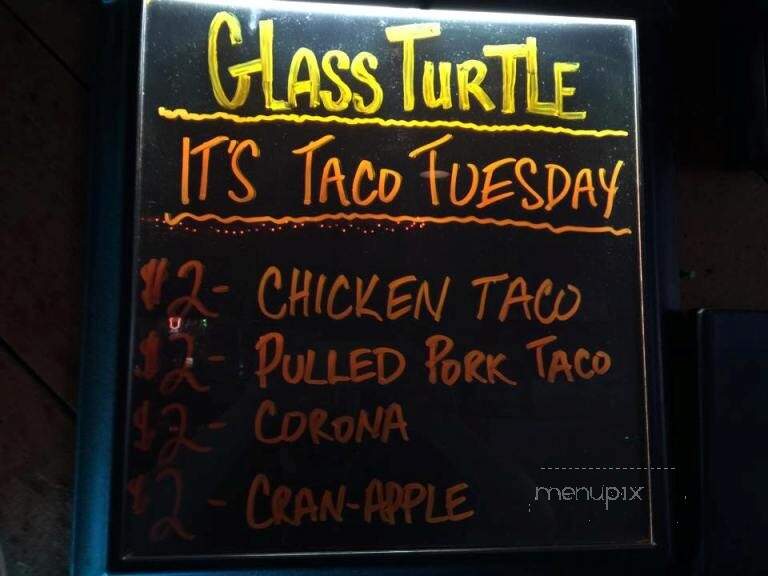 GLASS TURTLE
IT'S TACO TUESDAY
$2- CHICKEN TACO
$2- PULLED PORK TACO
$2- CORONA
$2- CRAN-APPLE
menupix